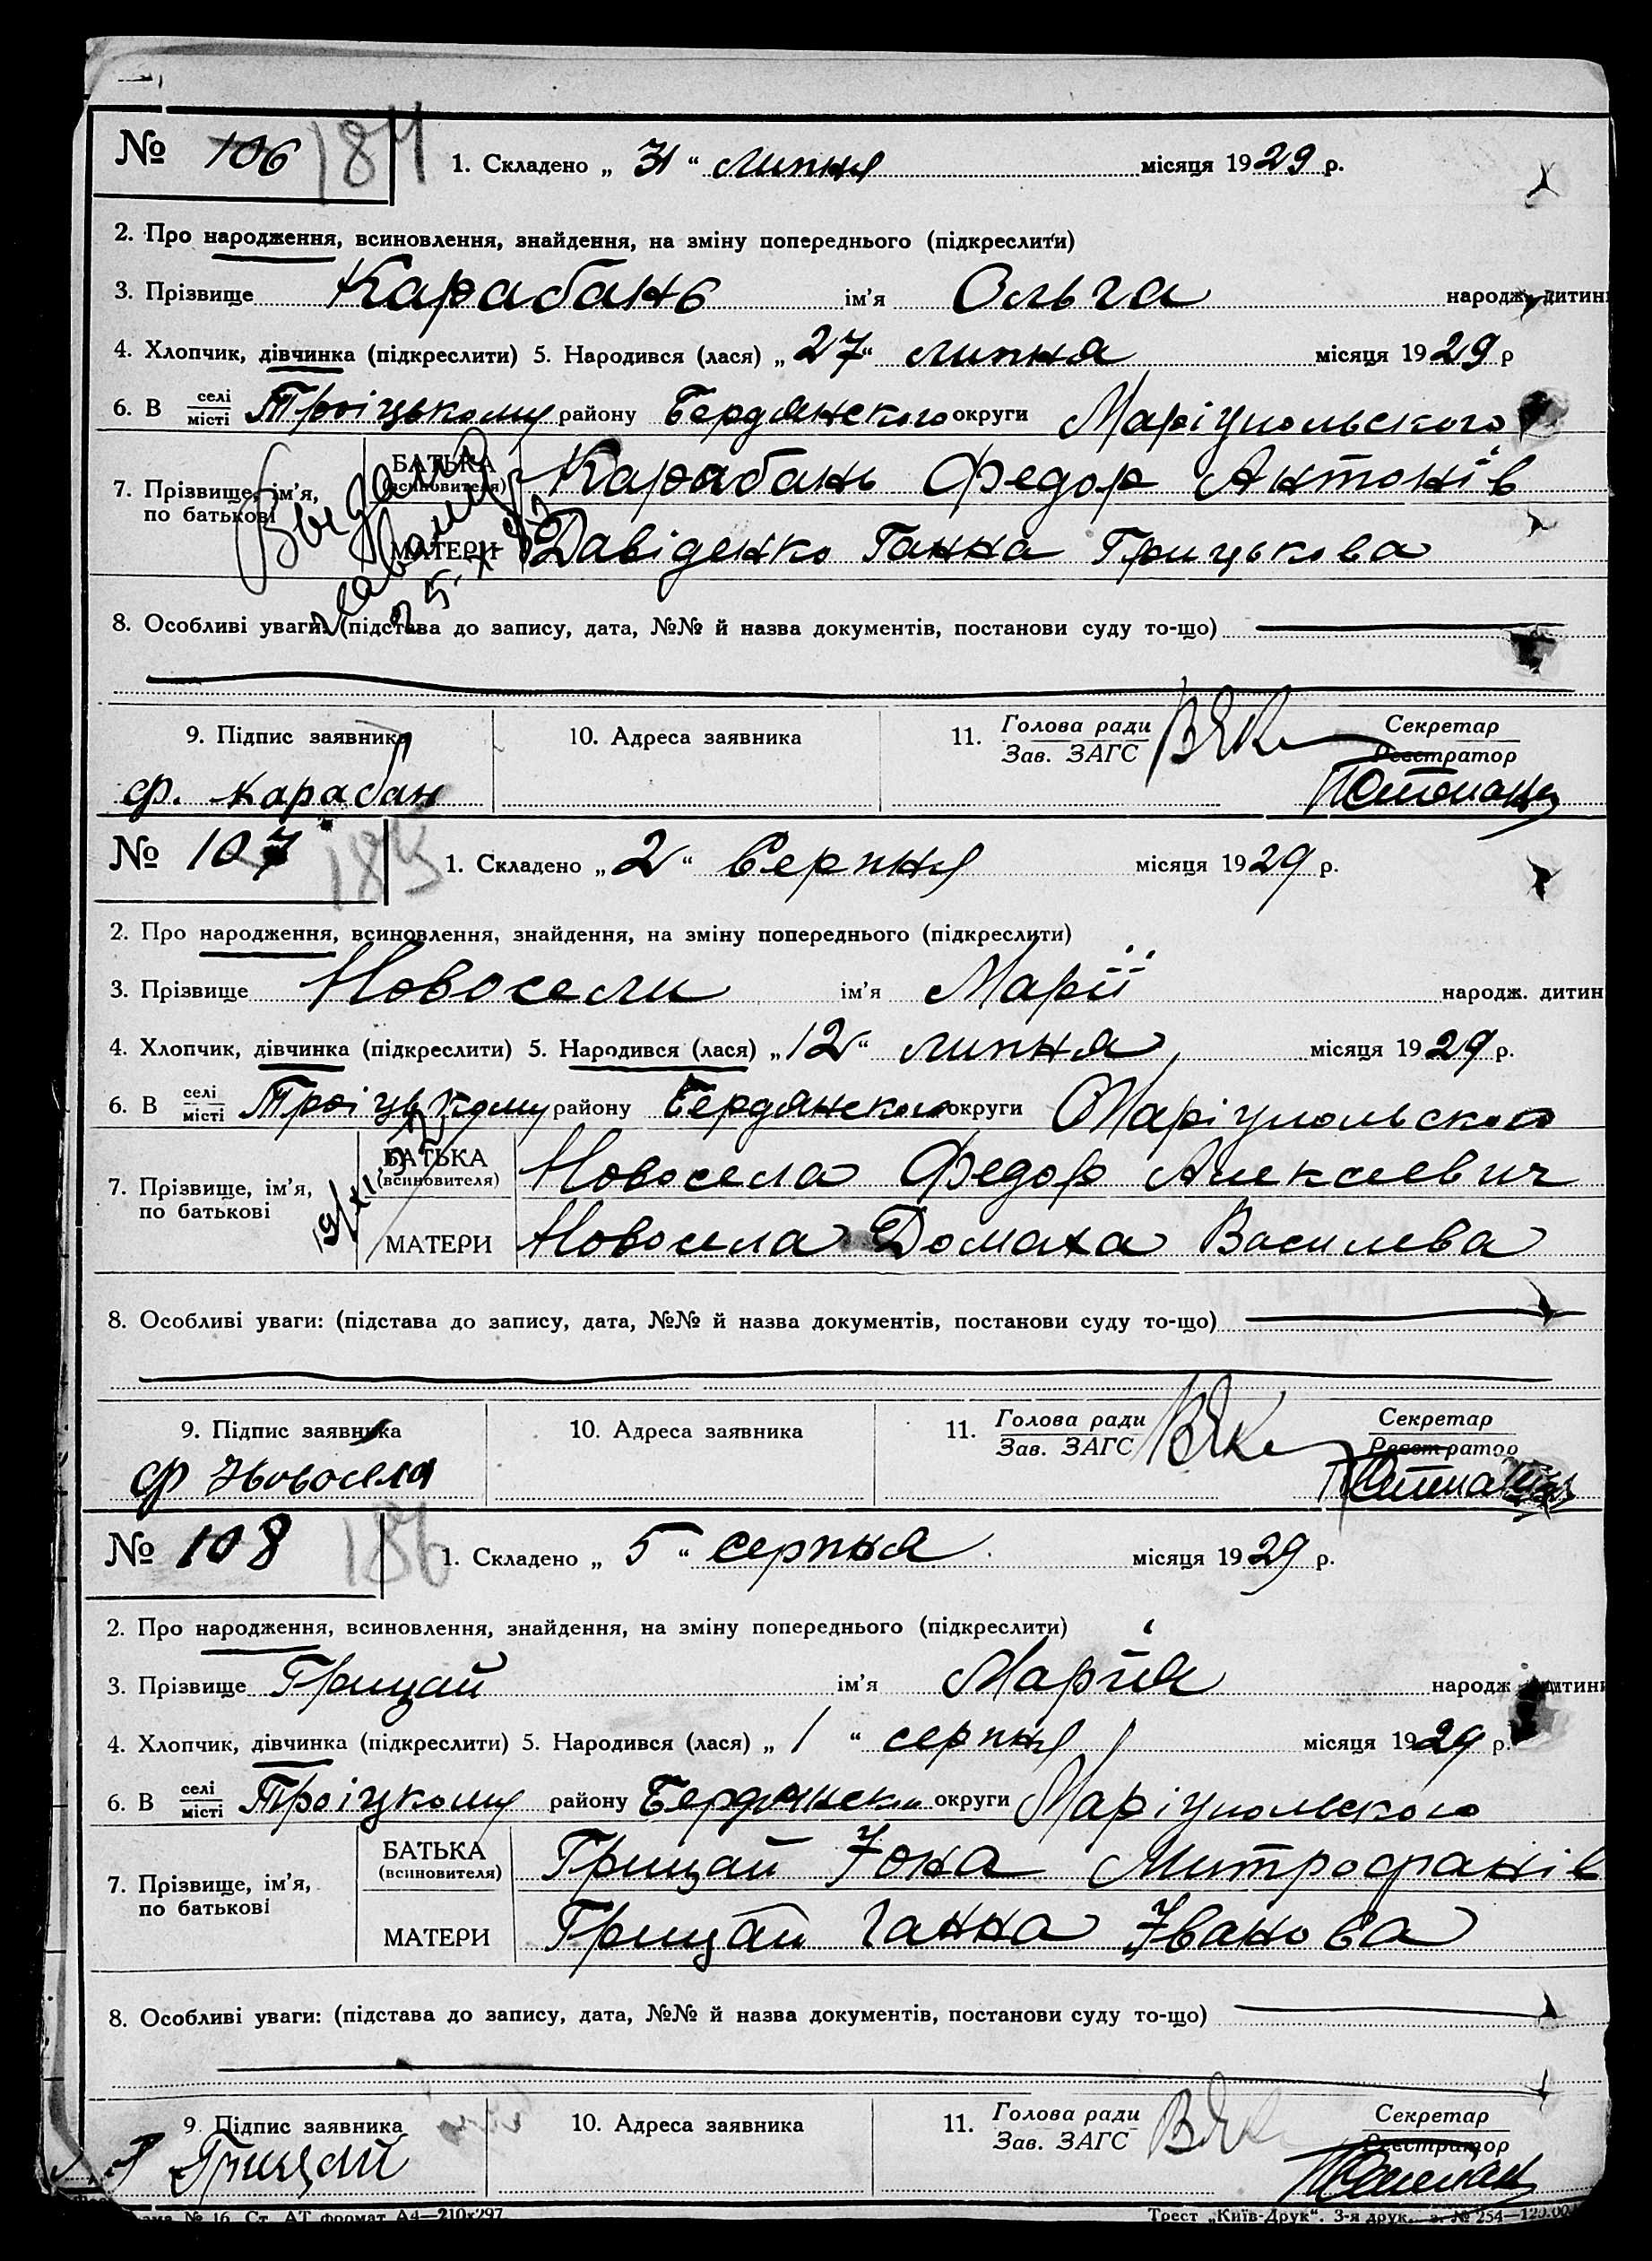 № 106 184 1. Складено „ 31 “ липня місяця 1929 р.
2. Про народження, всиновлення, знайдення, на зміну попереднього (підкреслити)
3. Прізвище Карабань ім’я Ольга народж. дитини
4. Хлопчик, дівчинка (підкреслити) 5. Народився (лася) „ 27 “ липня місяця 1929 р
6. В селі/місті Троіцькому району Бердянского округи Маріупольського
7. Прізвище, ім’я, по батькові БАТЬКА (всиновителя) Карабань Федор Антонів
МАТЕРИ Давіденко Ганна Грицькова
8. Особливі уваги: (підстава до запису, дата, №№ й назва документів, постанови суду то-що)
9. Підпис заявника 10. Адреса заявника 11. Голова ради Секретар
Зав. ЗАГС Реєстратор
Ф. Карабан
№ 107 185 1. Складено „ 2 “ Серпня місяця 1929 р.
2. Про народження, всиновлення, знайдення, на зміну попереднього (підкреслити)
3. Прізвище Новосели ім’я Марії народж. дитин
4. Хлопчик, дівчинка (підкреслити) 5. Народився (лася) „ 12 “ липня місяця 1929 р.
6. В селі/місті Троіцькому району Бердянского округи Маріупольского
7. Прізвище, ім’я, по батькові БАТЬКА (всиновителя) Новосела Федор Алексеевич
МАТЕРИ Новосела Домаха Василева
8. Особливі уваги: (підстава до запису, дата, №№ й назва документів, постанови суду то-що)
9. Підпис заявника 10. Адреса заявника 11. Голова ради Секретар
Зав. ЗАГС Реєстратор
Ф Новосела
№ 108 186 1. Складено „ 5 “ серпня місяця 1929 р.
2. Про народження, всиновлення, знайдення, на зміну попереднього (підкреслити)
3. Прізвище Грицай ім’я Марія народж дитини
4. Хлопчик, дівчинка (підкреслити) 5. Народився (лася) „ 1 “ серпня місяця 1929 р.
6. В селі/місті Троіцкому району Бердянськ округи Маріупольского
7. Прізвище, ім’я, по батькові БАТЬКА (всиновителя) Грицай Іона Митрофанів
МАТЕРИ Грицай Ганна Іванова
8. Особливі уваги: (підстава до запису, дата, №№ й назва документів, постанови суду то-що)
9. Підпис заявника 10. Адреса заявника 11. Голова ради Секретар
Зав. ЗАГС Реєстратор
Грицай
№ 16. Ст. АТ формат А4—210х297 Трест „Київ-Друк“. 3-я друк. з. № 254—120.00